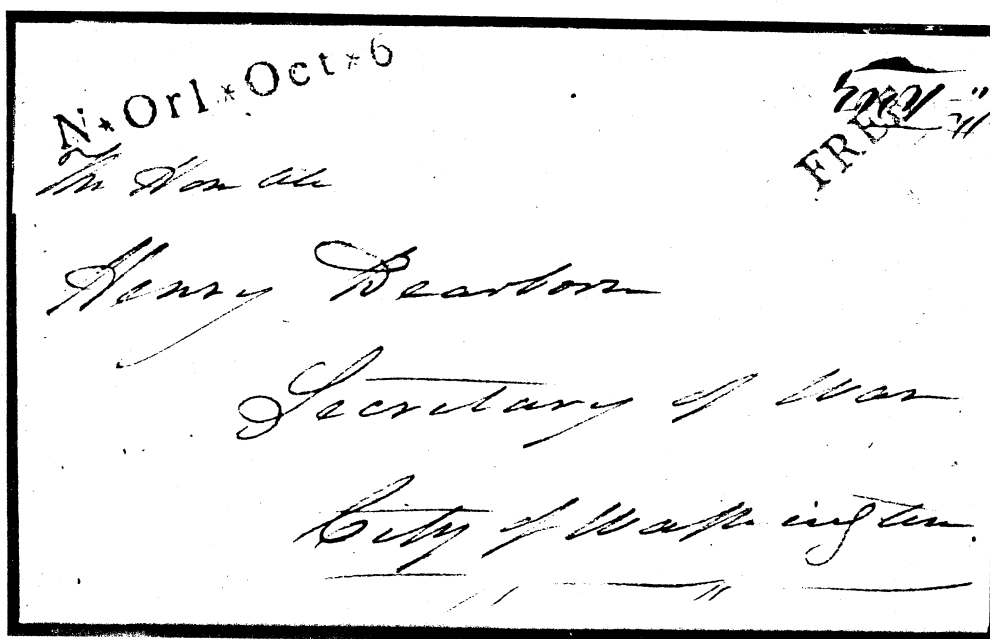 N*Orl*Oct*6
FREE
The Hon ble
Henry Dearborn
Secretary of War
City of Washington.